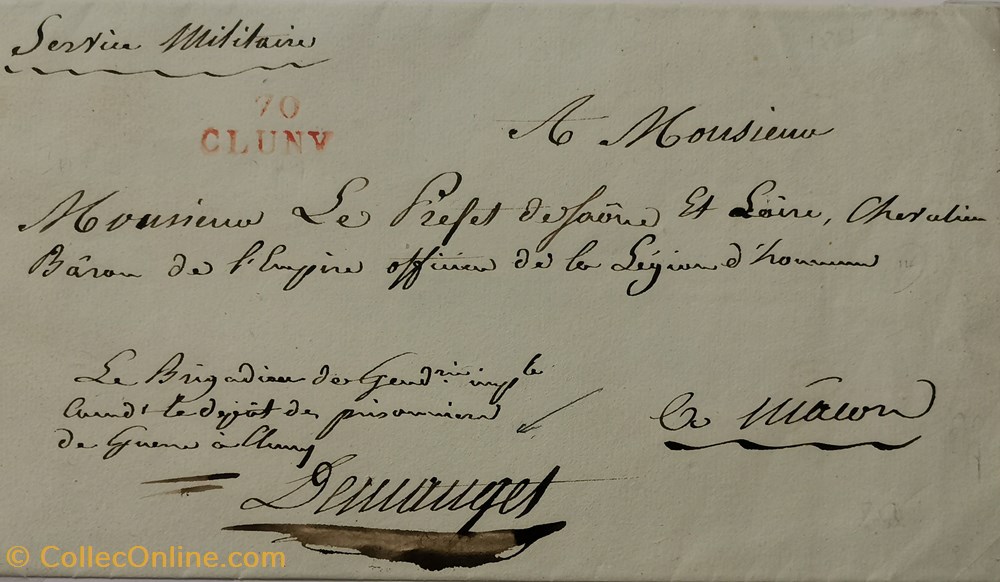 Service Militaire
70
CLUNY
A Monsieur
Monsieur Le Préfet de Saône Et Loire, Chevalier
Bâron de l'Empire officier de la Légion d'honneur
Le Brigadier de Gend.rie imp.le
Comd.t le dépôt de prisonniers
de Guerre à Cluny
A Mâcon
Demanget
© CollecOnline.com